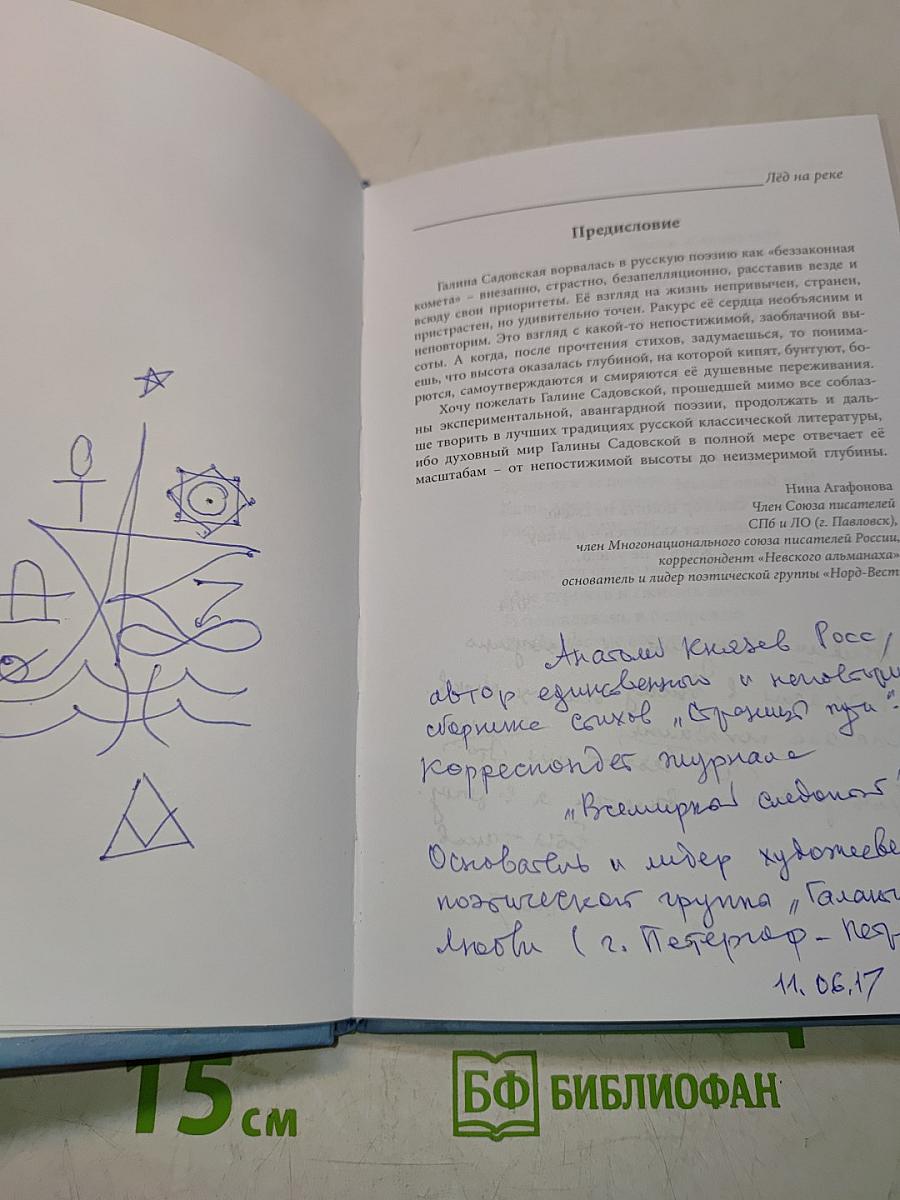 Лёд на реке
Предисловие
Галина Садовская ворвалась в русскую поэзию как «беззаконная
комета» – внезапно, страстно, безапелляционно, расставив везде и
всюду свои приоритеты. Её взгляд на жизнь непривычен, странен,
пристрастен, но удивительно точен. Ракурс её сердца необъясним и
неповторим. Это взгляд с какой-то непостижимой, заоблачной вы-
соты. А когда, после прочтения стихов, задумаешься, то понима-
ешь, что высота оказалась глубиной, на которой кипят, бунтуют, бо-
рются, самоутверждаются и смиряются её душевные переживания.
Хочу пожелать Галине Садовской, прошедшей мимо все соблаз-
ны экспериментальной, авангардной поэзии, продолжать и даль-
ше творить в лучших традициях русской классической литературы,
ибо духовный мир Галины Садовской в полной мере отвечает её
масштабам – от непостижимой высоты до неизмеримой глубины.
Нина Агафонова
Член Союза писателей
СПб и ЛО (г. Павловск),
член Многонационального союза писателей России,
корреспондент «Невского альманаха»
основатель и лидер поэтической группы «Норд-Вест
Анатолий Князев Росс,
автор единственного и неповторим
сборника стихов „Страницы пути"-
Корреспондет журнала
„Всемирной следопыт"
Основатель и лидер художестве
поэтической группы „Галакти
Любви (г. Петергоф – Петр
11.06.17
15 см
БФ БИБЛИОФАН